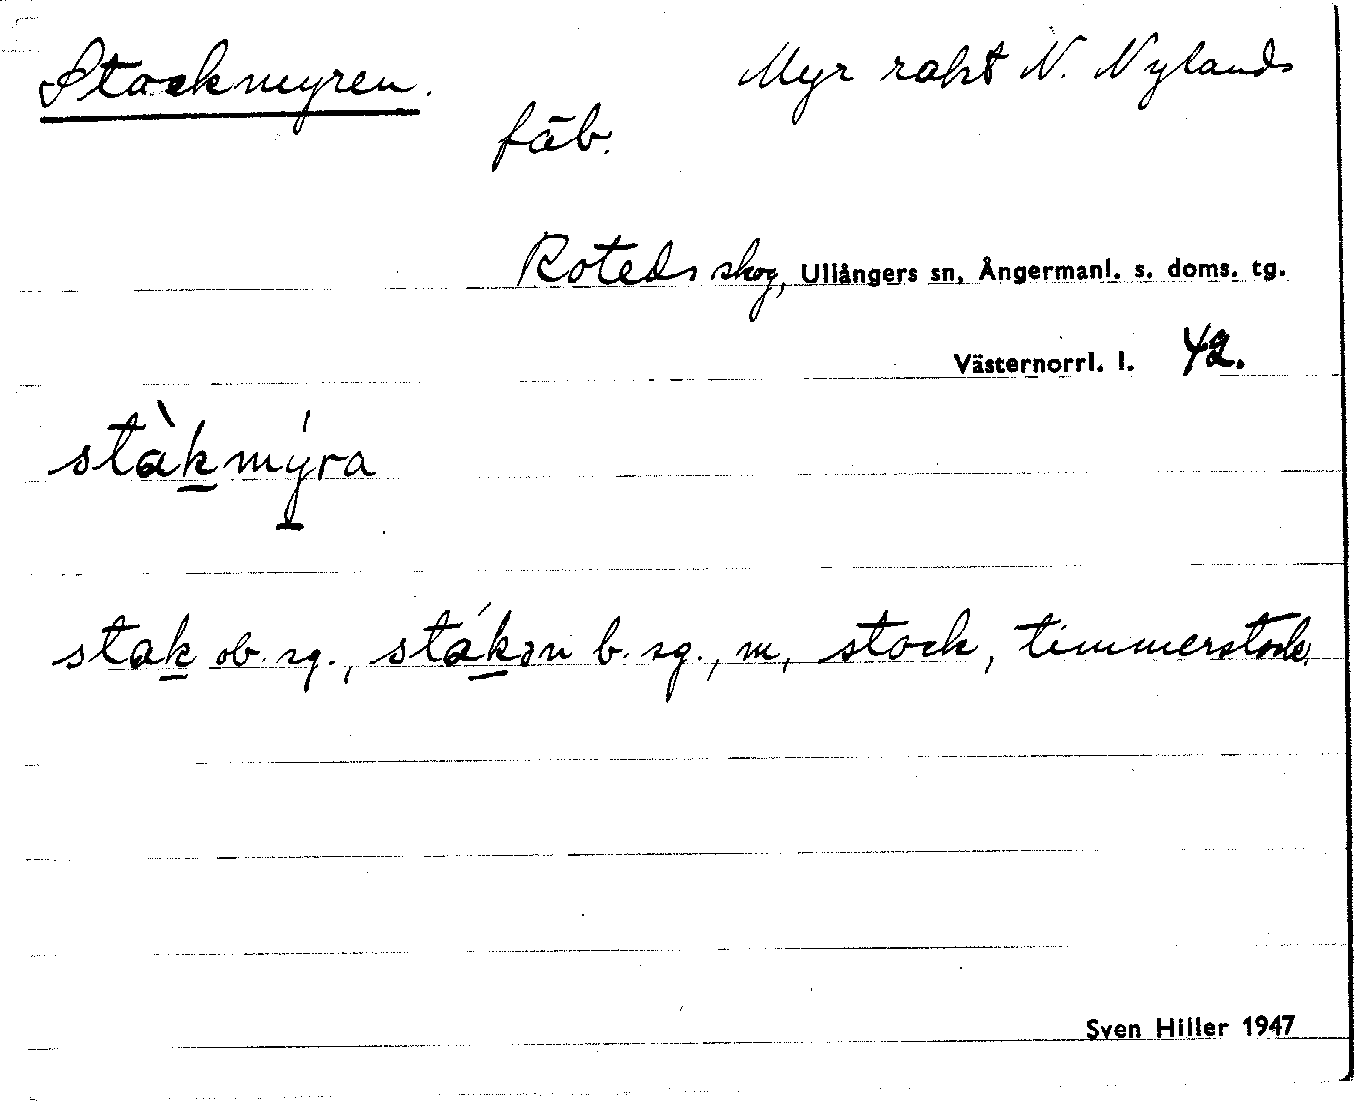 Stockmyren. Myr rakt N. Nylands
fäb.
Roteds skog, Ullångers sn, Ångermanl. s. doms. tg.
Västernorrl. l. 42.
stàkmýra
stak ob. sg., stákən b. sg., m, stock, timmerstock.
Sven Hiller 1947